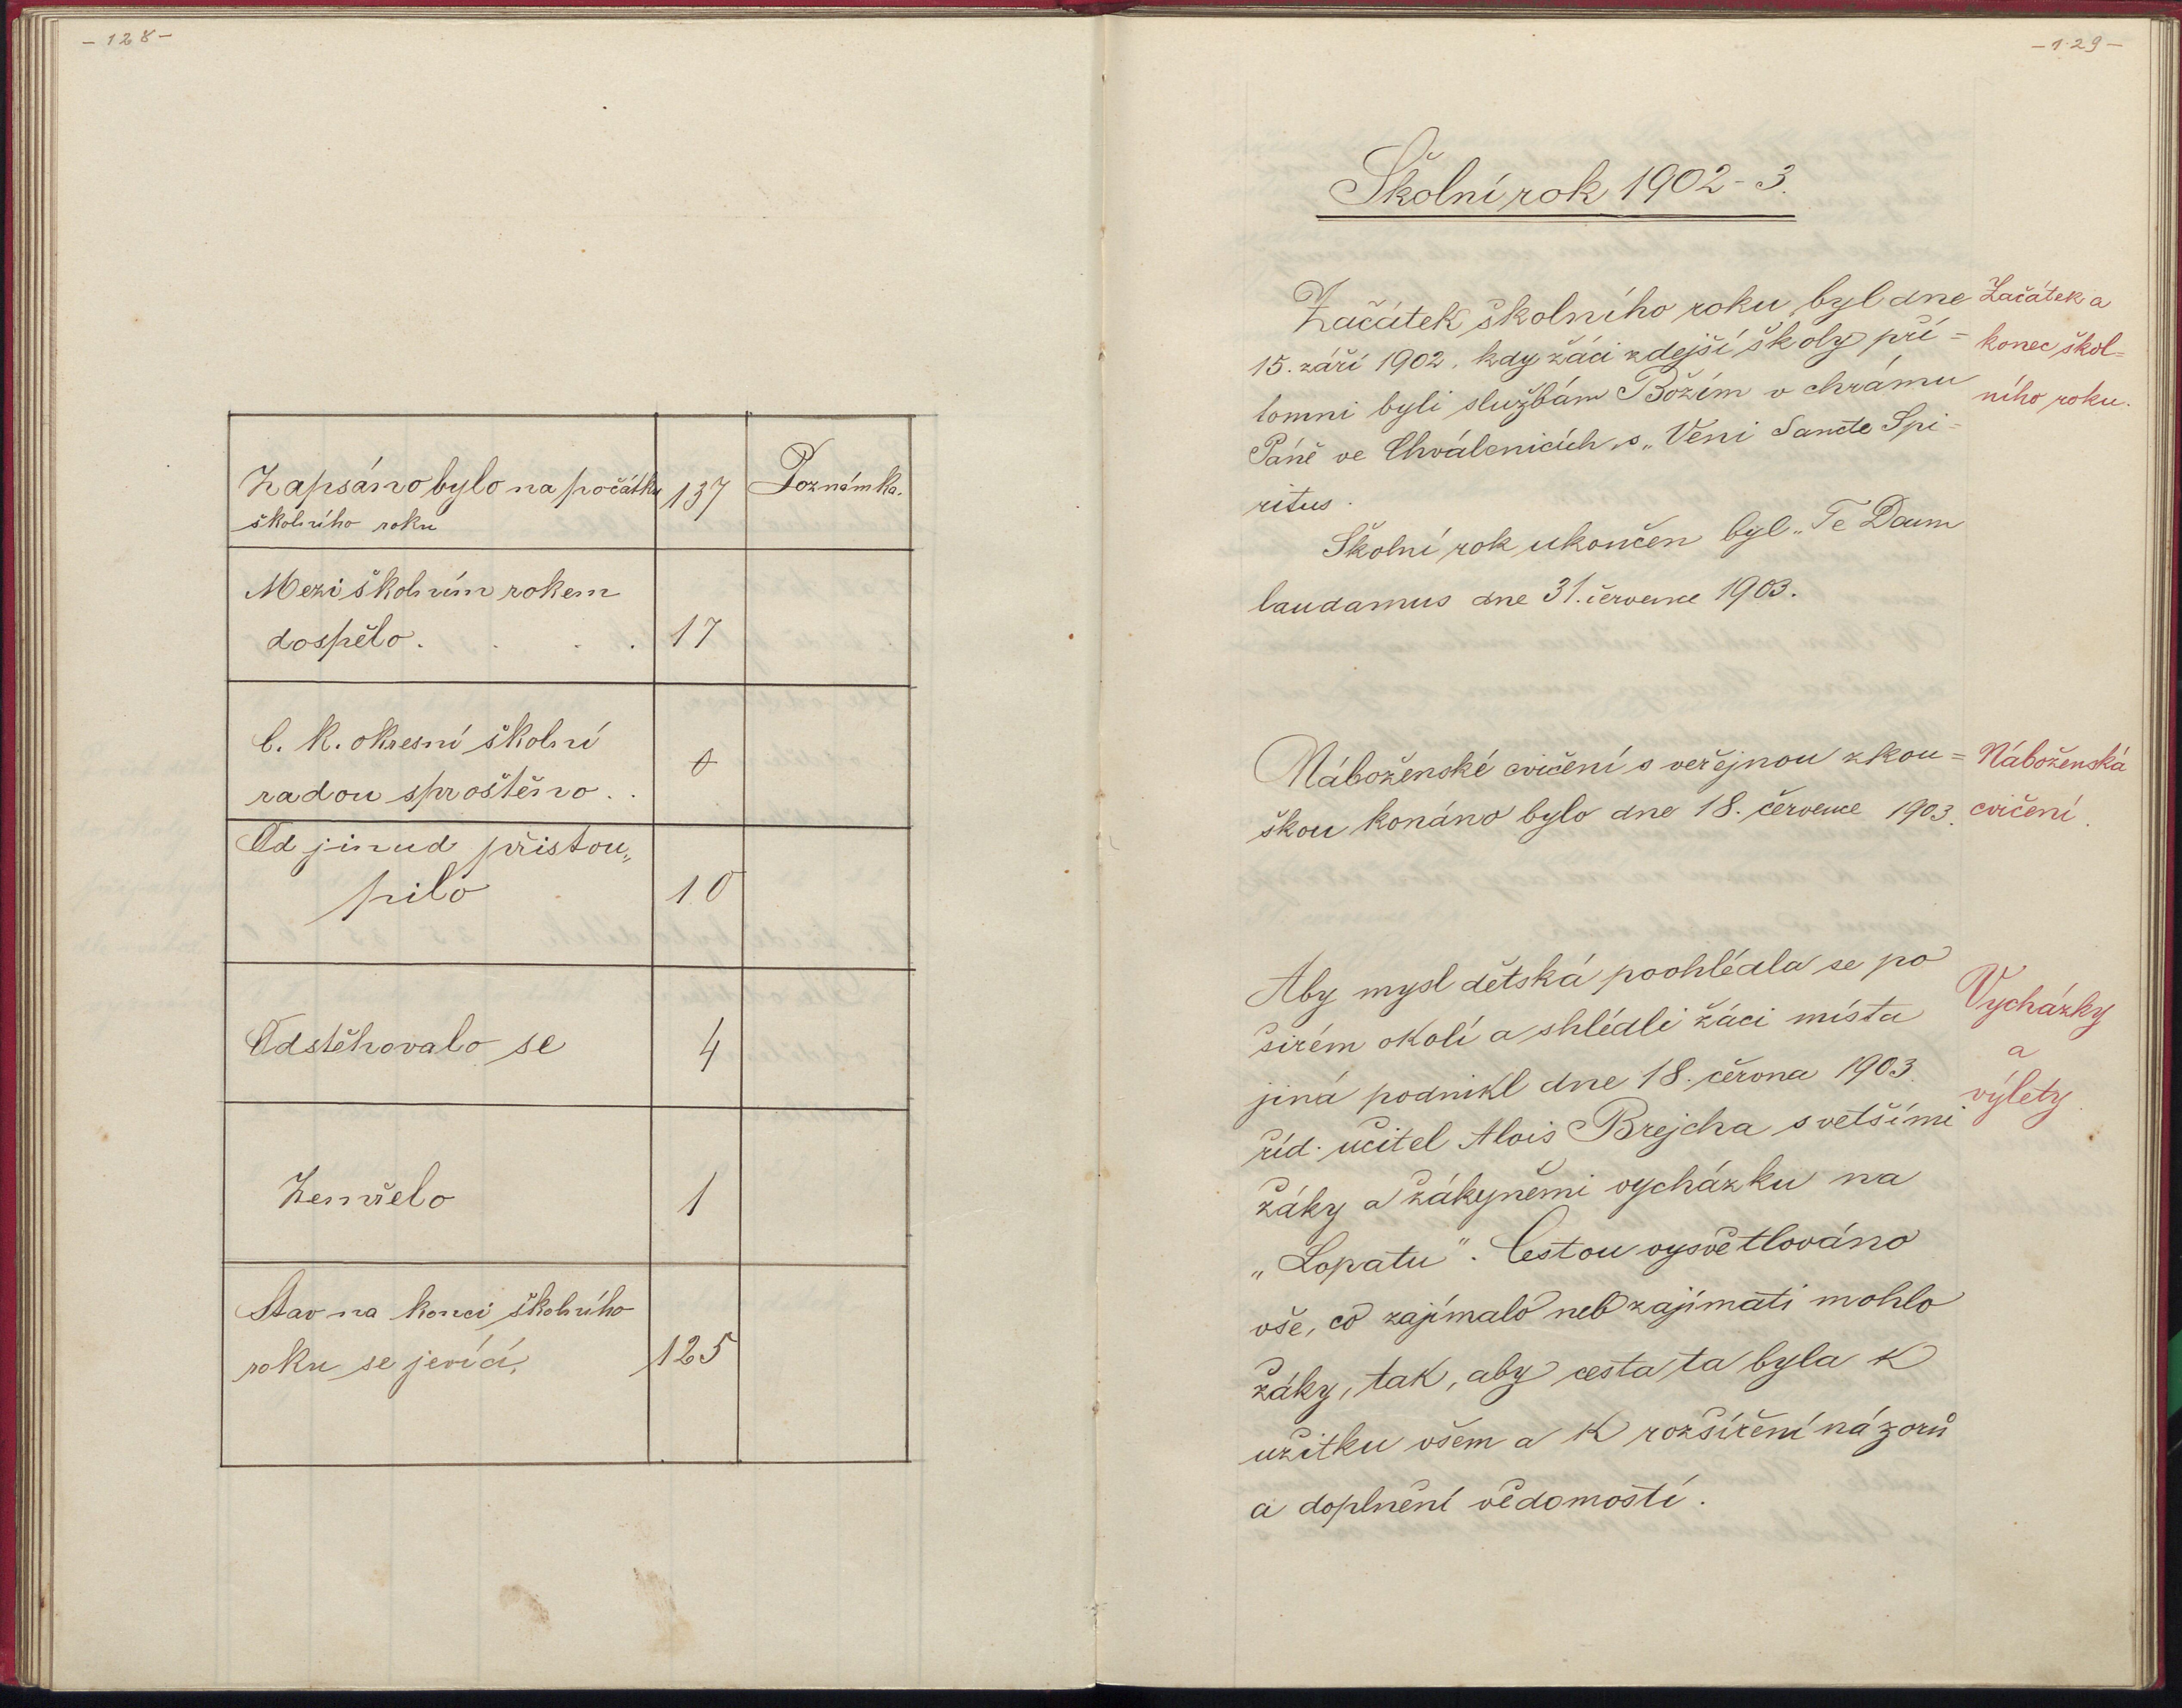 -128-
Zapsáno bylo na počátku 137 Poznámka.
školního roku
Mezi školním rokem
dospělo. . . . 17
C. k. okresní školní
radou sproštěno . . 0
Od jinud přistou„
pilo 10
Odstěhovalo se 4
Zemřelo 1
Stav na konci školního
roku se jevící, 125
-129-
Školní rok 1902-3.
Začátek školního roku byl dne
15. září 1902, kdy žáci zdejší školy pří=
tomni byli službám Božím v chrámu
Páně ve Chválenicích s „Veni Sancte Spi=
ritus.
Školní rok ukončen byl „Te Daum
laudamus dne 31. července 1903.
Začátek a
konec škol=
ního roku.
Náboženské cvičení s veřejnou zkou=
škou konáno bylo dne 18. července 1903.
Náboženská
cvičení.
Aby mysl dětská poohlédla se po
širém okolí a shlédli žáci místa
jiná podnikl dne 18. června 1903.
říd. učitel Alois Brejcha s většími
žáky a žákyněmi vycházku na
„Lopatu". Cestou vysvětlováno
vše, co zajímalo neb zajímati mohlo
žáky, tak, aby cesta ta byla k
užitku všem a k rozšíření názorů
a doplnění vědomostí.
Vycházky
a
výlety.